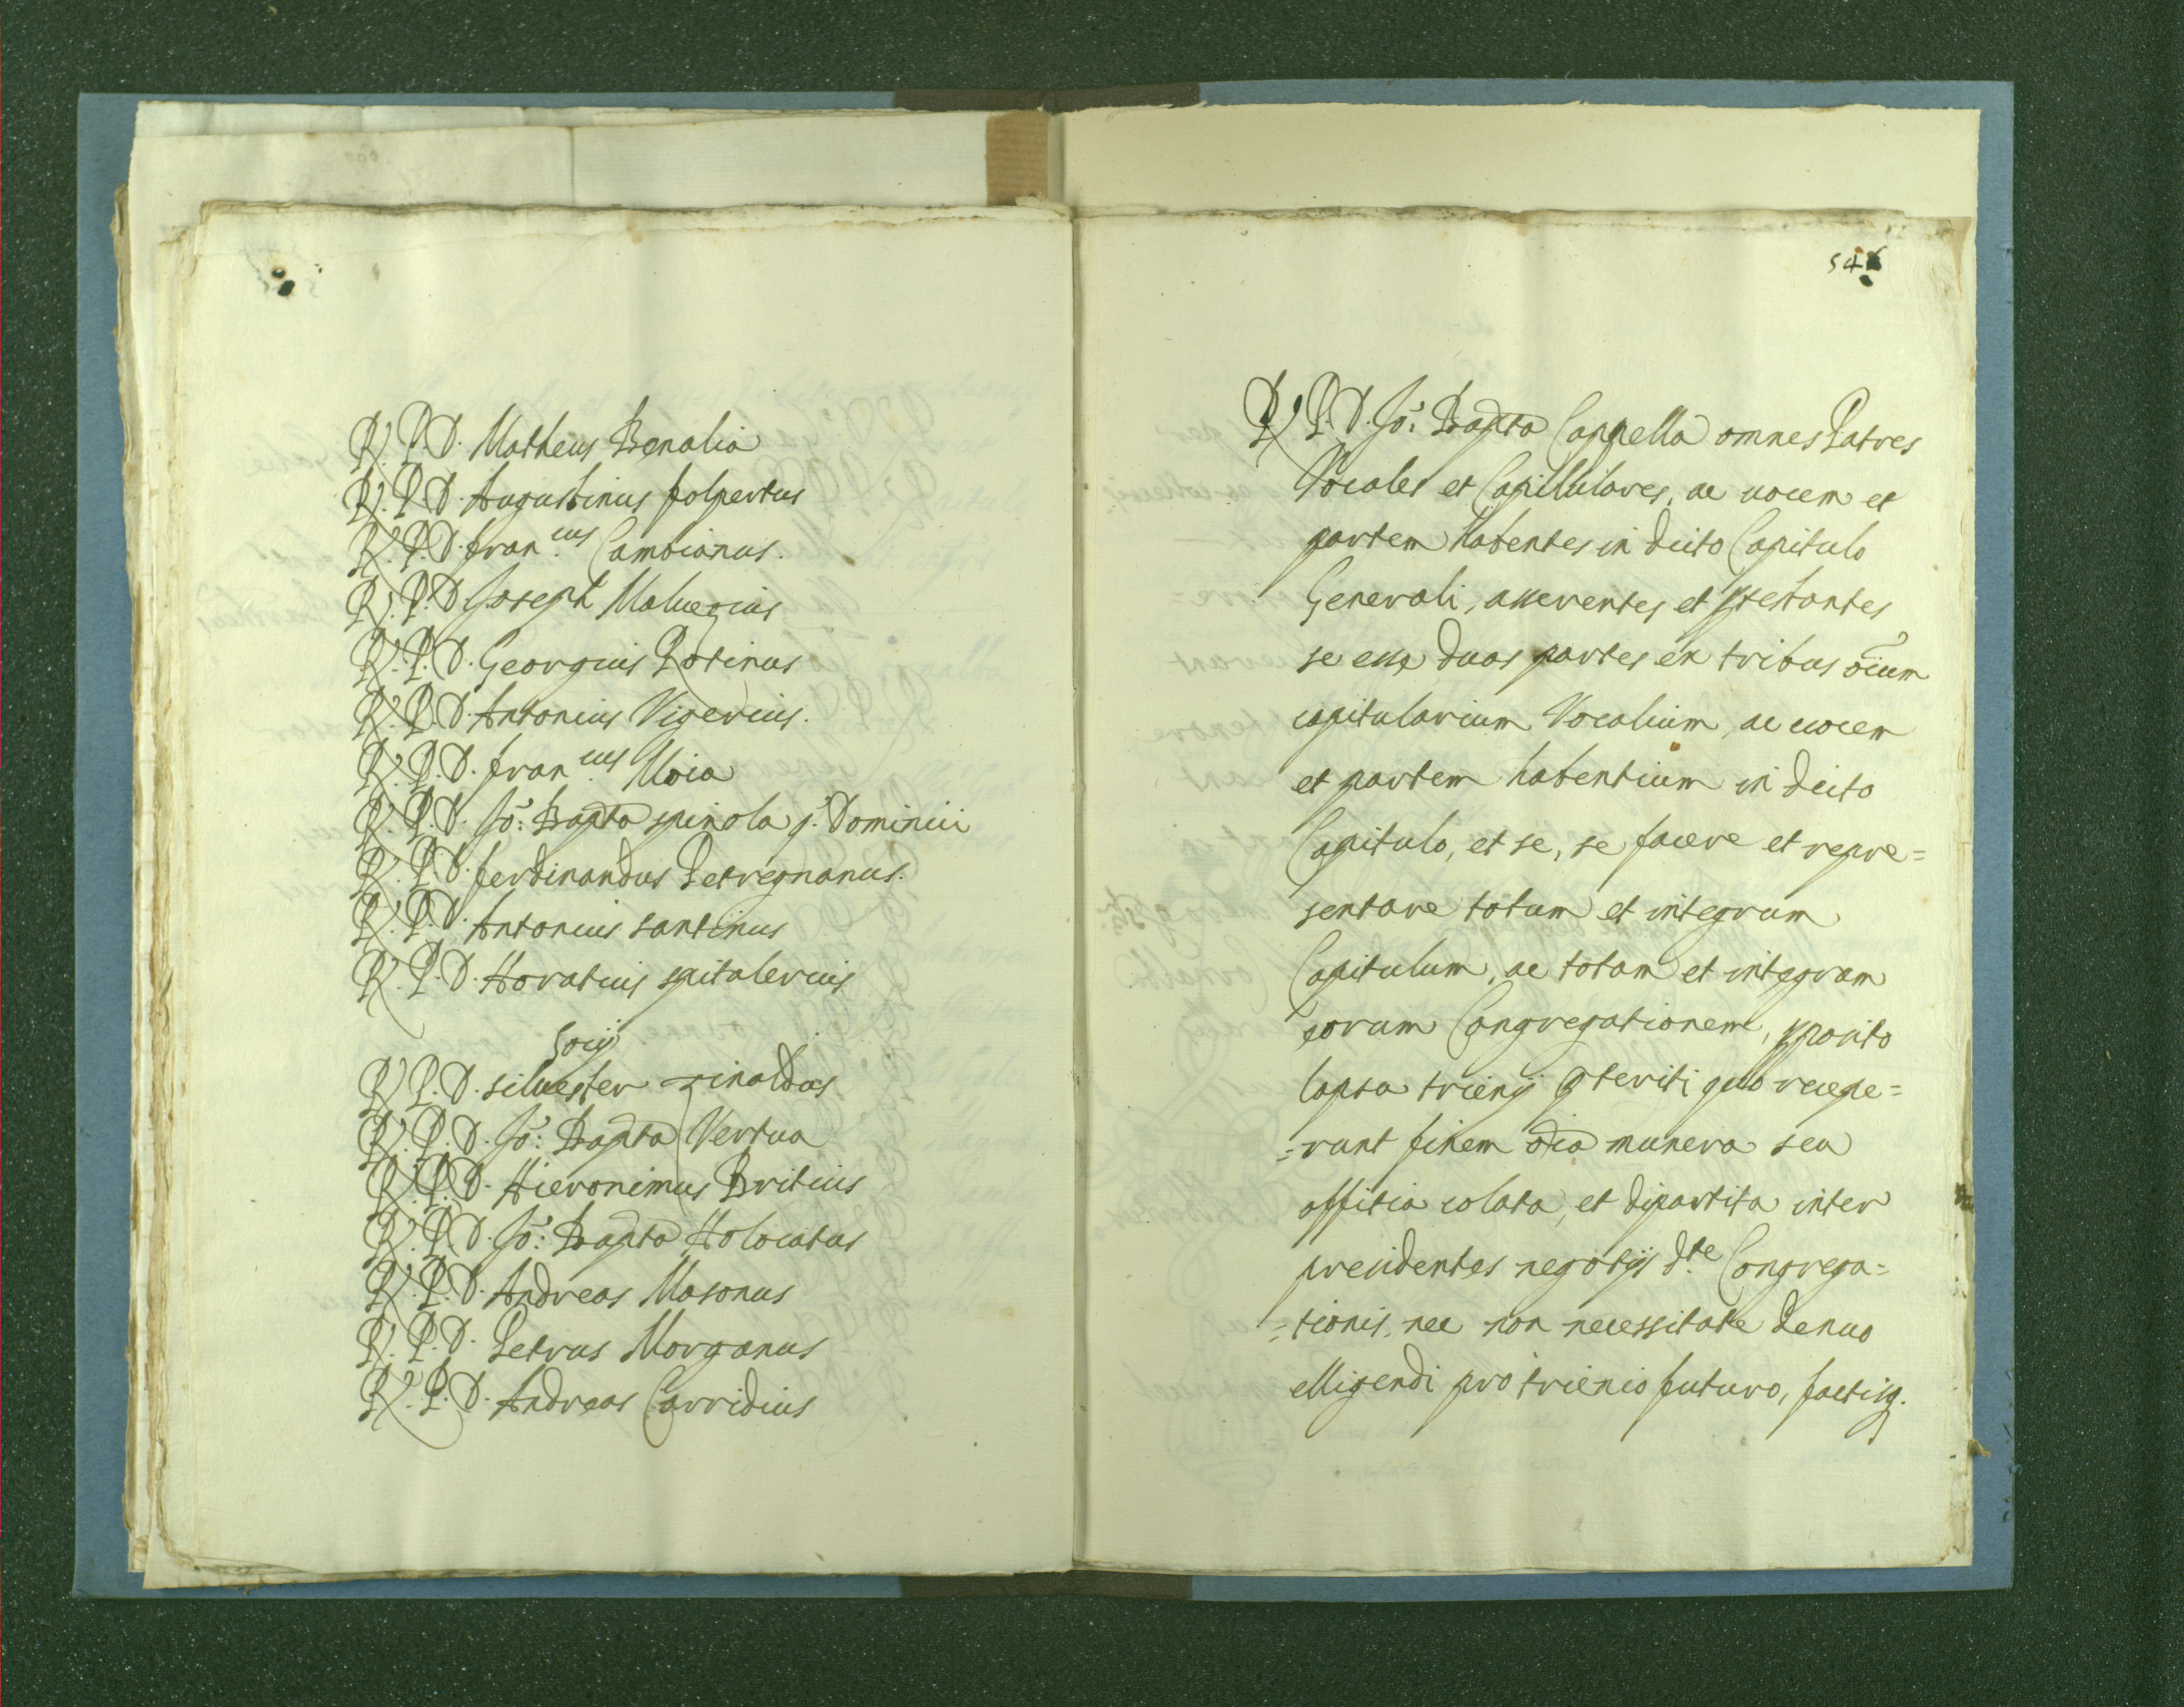 R. P. D. Matheus Benalia
R. P. D. Augustinus folpertus
R. P. D. fran.cus Cambianus.
R. P. D. Joseph Maluezius
R. P. D. Georgius Potinus
R. P. D. Antonius Vigerius.
R. P. D. fran.cus Moia
R. P. D. Jo: Bapta spinola q. Dominici
R. P. D. ferdinandus Petregnanus.
R. P. D. Antonius santinus
R. P. D. Horatius spitalerius
Socij
R. P. D. siluester rinaldas
R. P. D. Jo: Bapta Vertua
R. P. D. Hieronimus Britius
R. P. D. Jo: Bapta Holociatus
R. P. D. Andreas Masonus
R. P. D. Petrus Morganus
R. P. D. Andreas Carridius
R. P. D. Jo: Bapta Cappella omnes Patres
Vocales et Capitulares, ac uocem et
partem habentes in dicto Capitulo
Generali, asserentes et ptestantes
se esse duas partes ex tribus oium
capitularium Vocalium, ac uocem
et partem habentium in dicto
Capitulo, et se, se facere et repre=
sentare totum et integrum
Capitulum, ac totam et integram
eorum Congregationem, pposito
lapsu trienij pteriti quo recepe=
=runt finem oia munera seu
offitia colata, et dipartita inter
presidentes negotijs d.te Congrega=
=tionis, nec non necessitate denuo
elligendi pro trienio futuro, factisq.